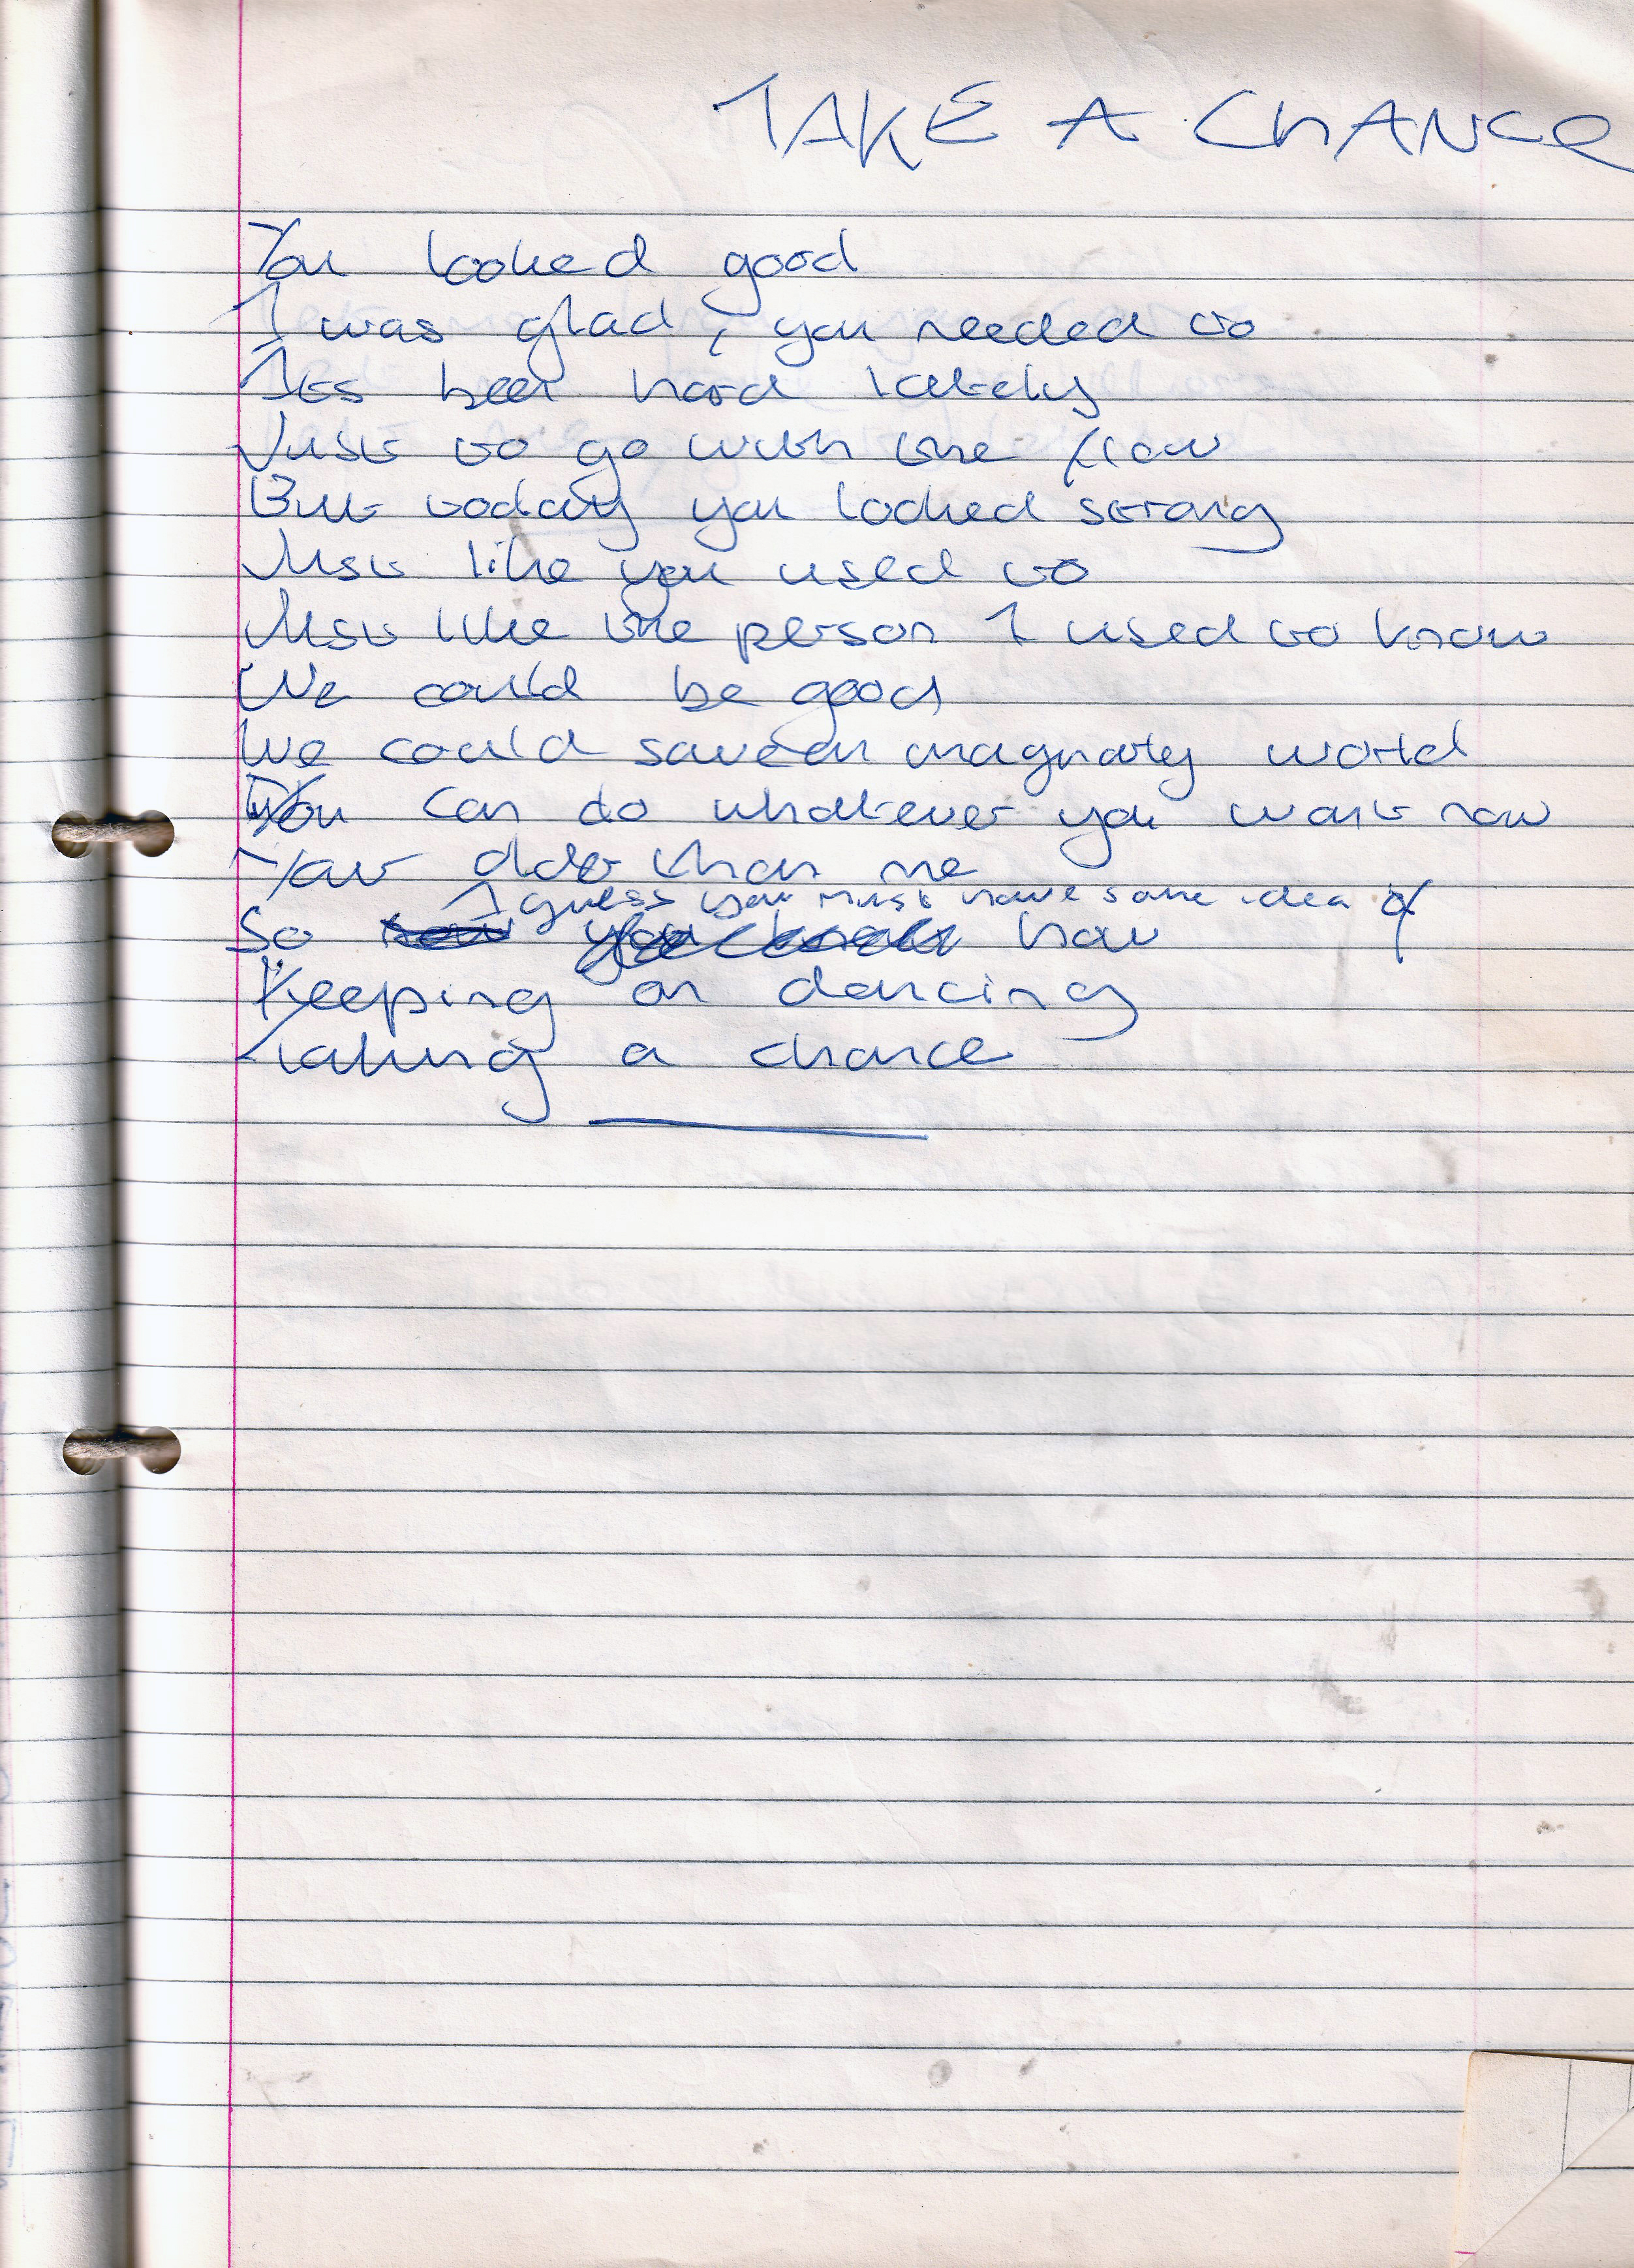 TAKE A CHANCE
You looked good
I was glad, you needed to
Its been hard lately
Just to go with the flow
But today you looked strong
Just like you used to
Just like the person I used to know
We could be good
We could save an imaginary world
You can do whatever you want now
Your older than me
I guess you must have some idea of
So how
Keeping on dancing
Taking a chance